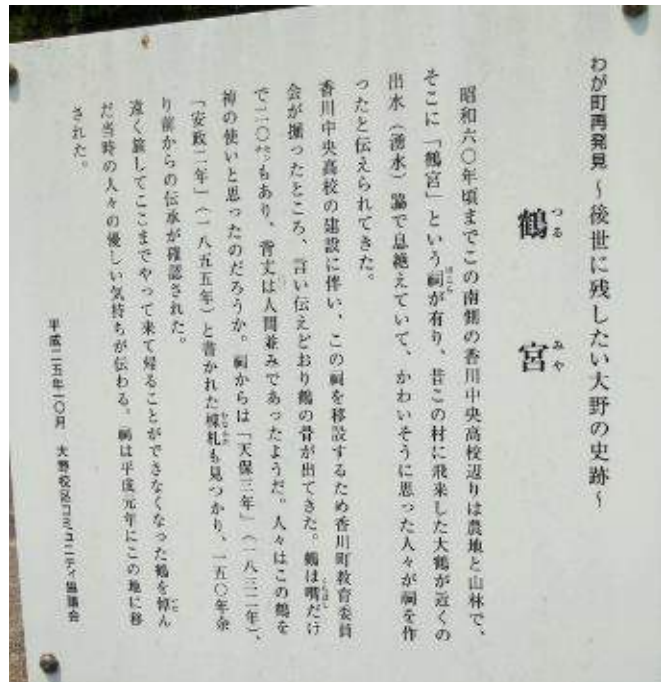 わが町再発見 ～後世に残したい大野の史跡～
鶴宮
つる みや
昭和六〇年頃までこの南側の香川中央高校辺りは農地と山林で、
そこに「鶴宮」という祠が有り、昔この村に飛来した大鶴が近くの
ほこら
出水（湧水）脇で息絶えていて、かわいそうに思った人々が祠を作
ったと伝えられてきた。
香川中央高校の建設に伴い、この祠を移設するため香川町教育委員
会が掘ったところ、言い伝えどおり鶴の骨が出てきた。鶴は嘴だけ
くちばし
で二〇㌢もあり、背丈は人間並みであったようだ。人々はこの鶴を
神の使いと思ったのだろうか。祠からは「天保三年」（一八三二年）、
「安政二年」（一八五五年）と書かれた棟札も見つかり、一五〇年余
むなふだ
り前からの伝承が確認された。
遠く旅してここまでやって来て帰ることができなくなった鶴を悼ん
だ当時の人々の優しい気持ちが伝わる。祠は平成元年にこの地に移
された。
平成二五年一〇月 大野校区コミュニティ協議会